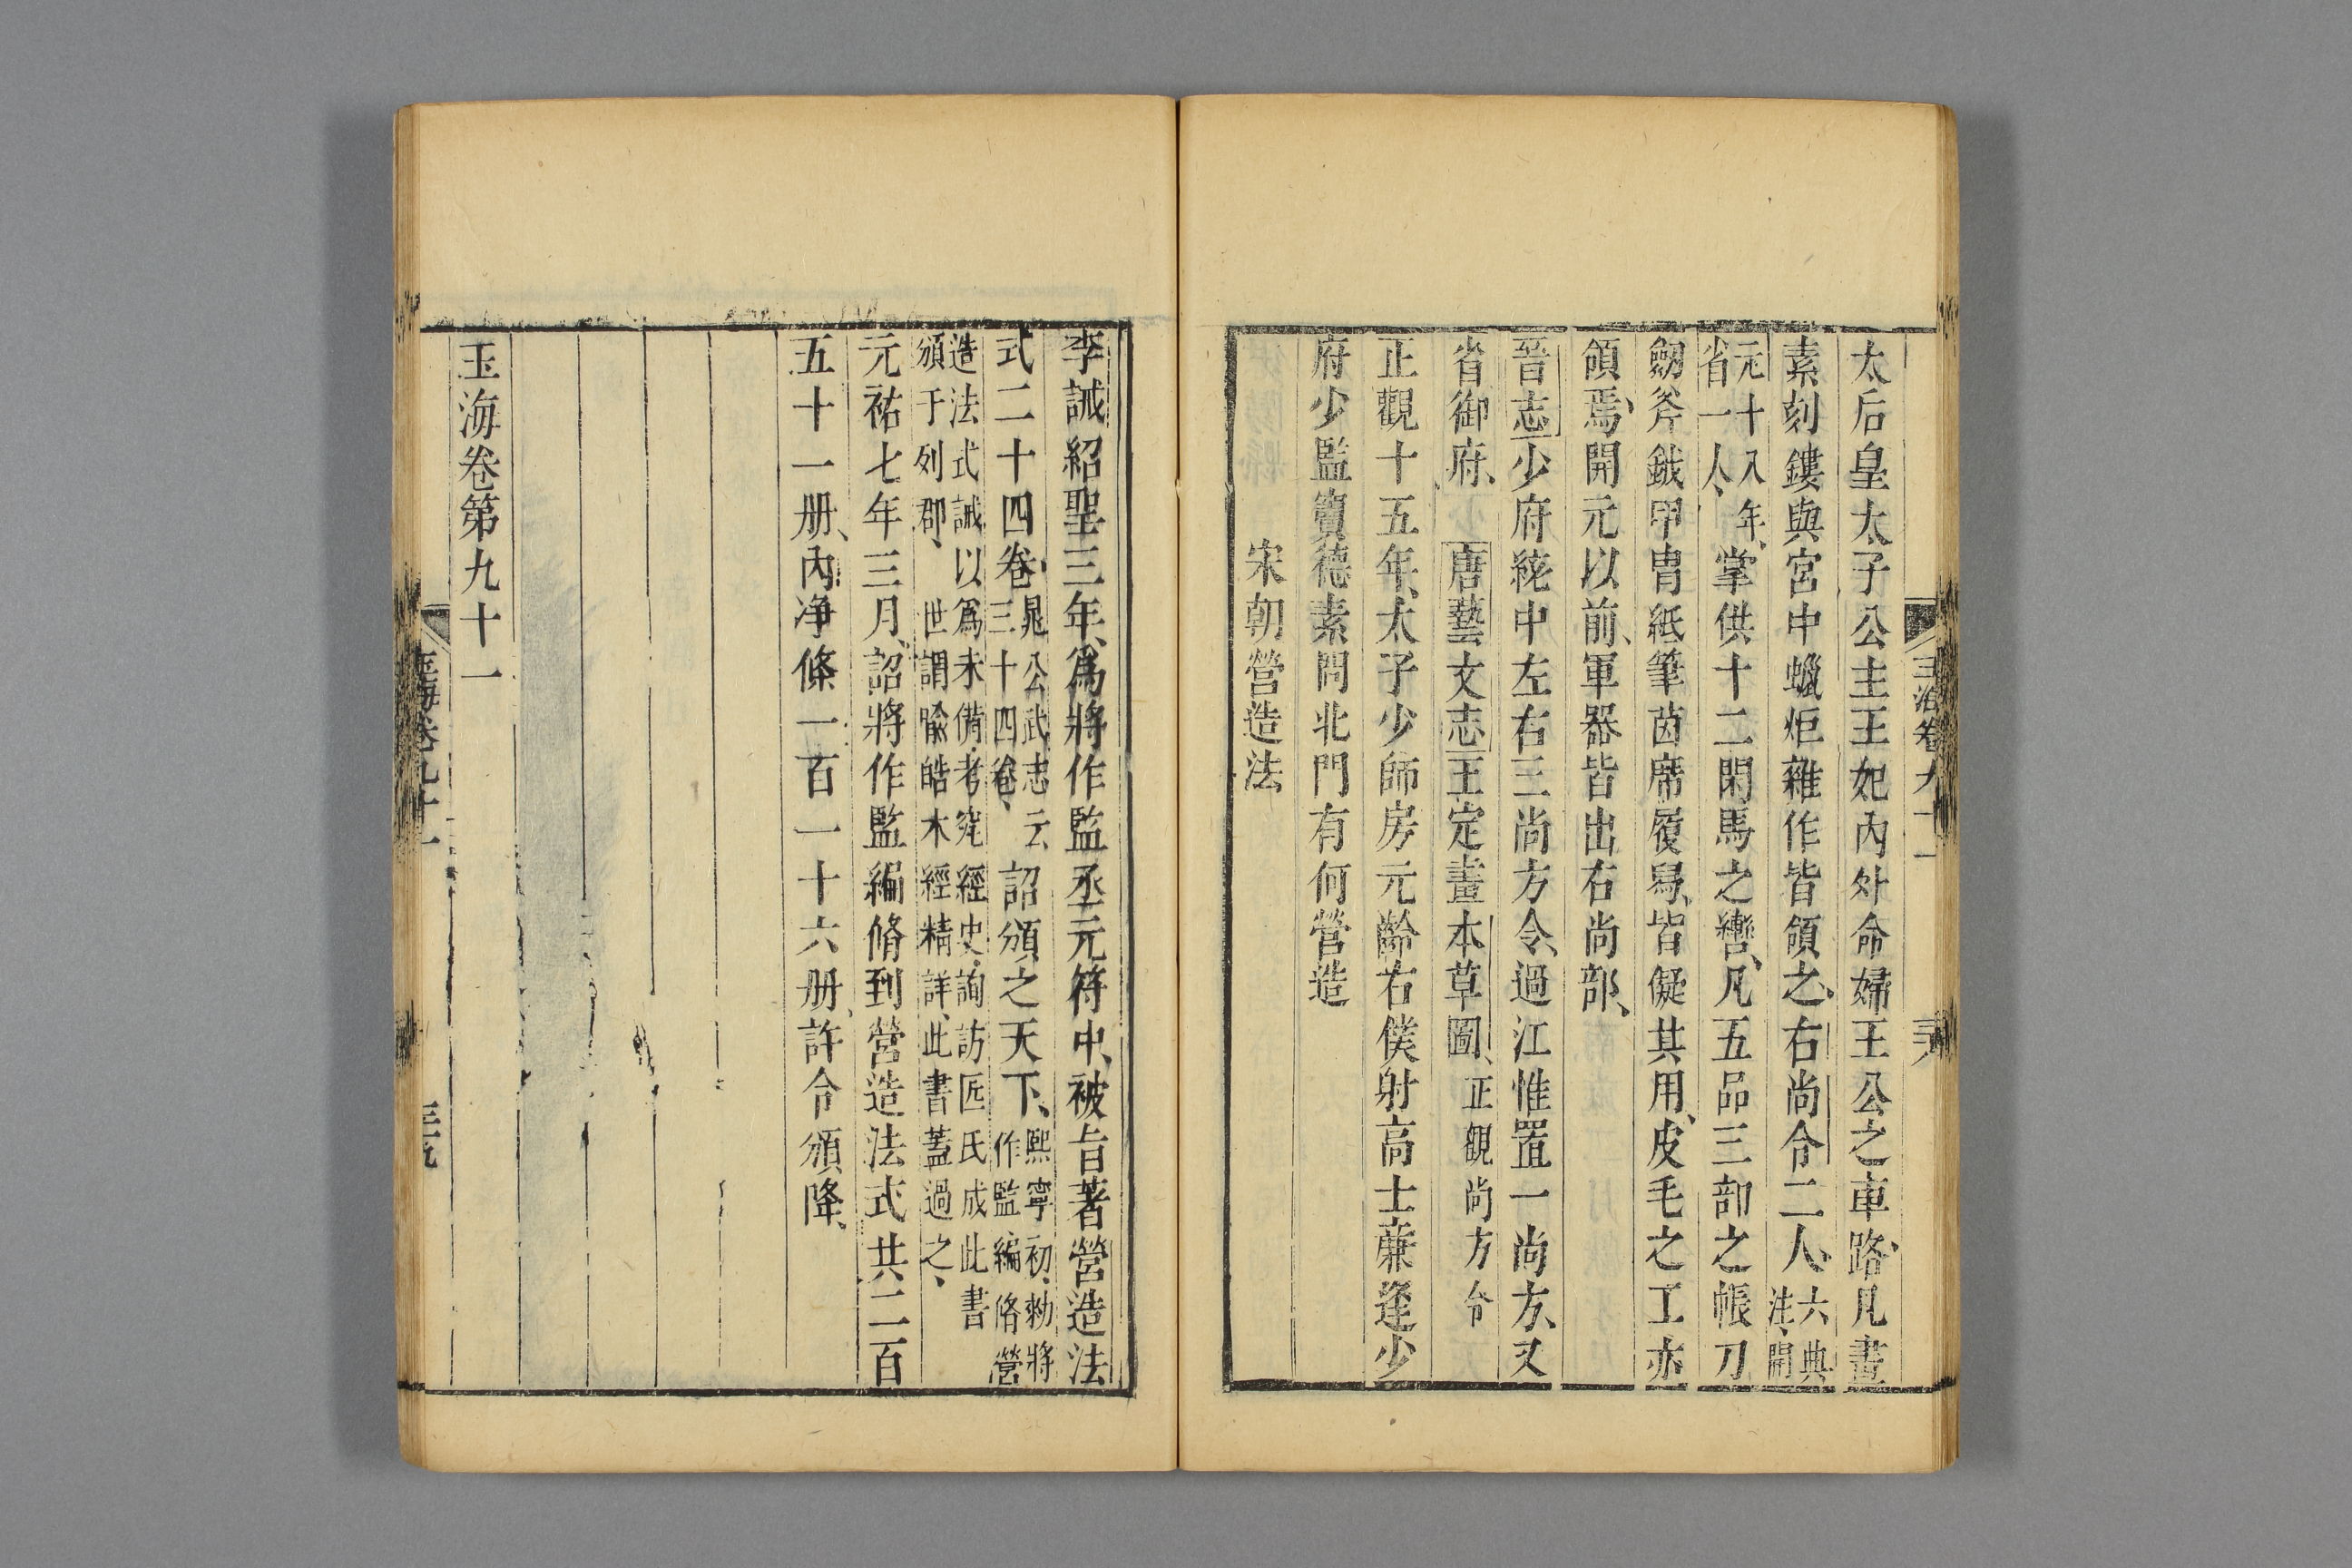 太后皇太子公主王妃內外命婦王公之車路、凡畫
素刻鏤與宮中蠟炬雜作皆領之、右尚令二人、六典注、開
元十八年、省一人、掌供十二閑馬之轡、凡五品三部之帳刀
劒斧鉞甲胄紙筆茵席履舄、皆儗其用、皮毛之工亦
領焉、開元以前、軍器皆出右尚部、
晉志少府統中左右三尚方令、過江惟置一尚方、又
省御府、唐藝文志王定畫本草圖、正觀尚方令
正觀十五年、太子少師房元齡右僕射高士廉逢少
府少監竇德素問北門有何營造
宋朝營造法
李誡紹聖三年、爲將作監丞元符中、被旨著營造法
式二十四卷、晁公武志云三十四卷、詔頒之天下、熙寧初、勑將作監編脩營
造法式誡以爲未備、考究經史、詢訪匠氏成此書頒于列郡、世謂喩皓木經精詳、此書蓋過之、
元祐七年三月、詔將作監編脩到營造法式共二百
五十一册、內净條一百一十六册、許令頒降、
玉海卷第九十一
玉海卷九十一